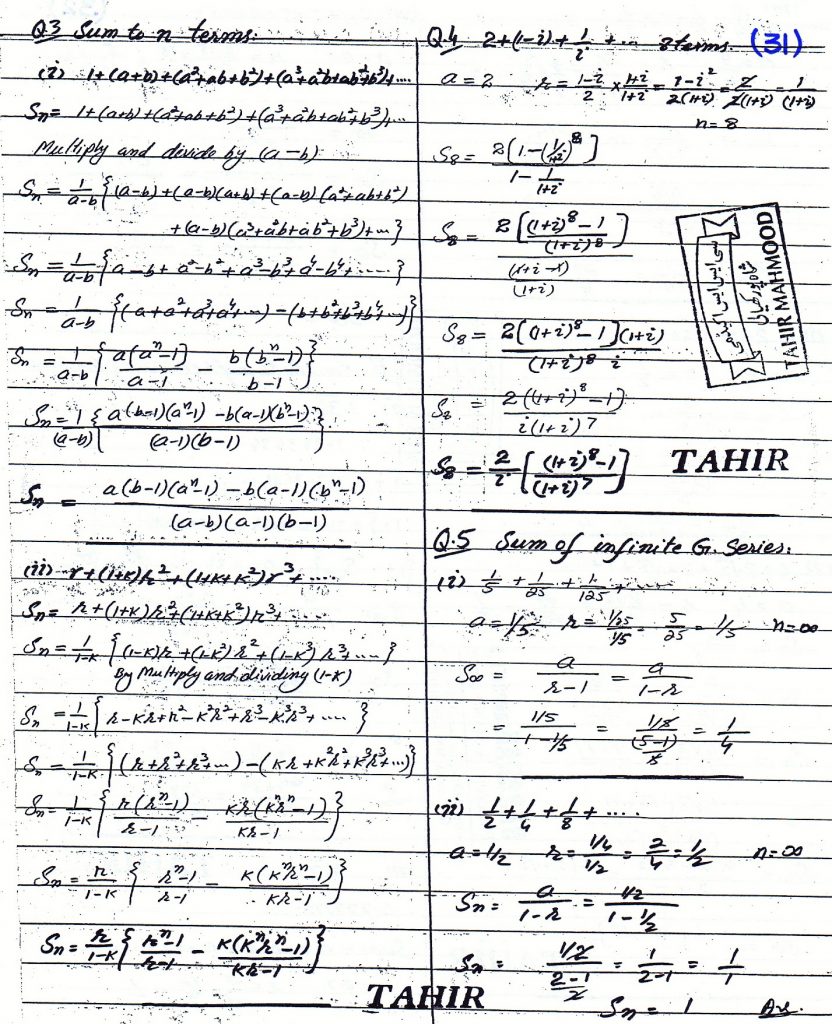 Q3 Sum to n terms:
(i) 1+(a+b)+(a²+ab+b²)+(a³+a²b+ab²+b³)+....
Sn= 1+(a+b)+(a²+ab+b²)+(a³+a²b+ab²+b³)+...
Multiply and divide by (a-b)
Sn = 1/(a-b) {(a-b)+(a-b)(a+b)+(a-b)(a²+ab+b²)
+(a-b)(a³+a²b+ab²+b³)+...}
Sn = 1/(a-b) {a-b+a²-b²+a³-b³+a⁴-b⁴+......}
Sn = 1/(a-b) {(a+a²+a³+a⁴+...)-(b+b²+b³+b⁴...)}
Sn = 1/(a-b) { a(aⁿ-1)/(a-1) - b(bⁿ-1)/(b-1) }
Sn = 1/(a-b) { a(b-1)(aⁿ-1) -b(a-1)(bⁿ-1) / (a-1)(b-1) }
Sn = a(b-1)(aⁿ-1) -b(a-1)(bⁿ-1) / (a-b)(a-1)(b-1)
(ii) r+(1+k)r²+(1+k+k²)r³+....
Sn= r+(1+k)r²+(1+k+k²)r³+....
Sn= 1/(1-k) {(1-k)r+(1-k²)r²+(1-k³)r³+....}
By Multiply and dividing (1-k)
Sn = 1/(1-k) { r-kr+r²-k²r²+r³-k³r³+..... }
Sn = 1/(1-k) {(r+r²+r³+...)-(kr+k²r²+k³r³+...)}
Sn = 1/(1-k) { r(rⁿ-1)/(r-1) - kr(kⁿrⁿ-1)/(kr-1) }
Sn = r/(1-k) { rⁿ-1/(r-1) - k(kⁿrⁿ-1)/(kr-1) }
Sn = r/(1-k) { rⁿ-1/(r-1) - k(kⁿrⁿ-1)/(kr-1) }
TAHIR
Q.4 2+(1-i)+1/i+... 8 terms. (31)
a=2 r= (1-i)/2 × (1+i)/(1+i) = (1-i²)/2(1+i) = 2/2(1+i) = 1/(1+i)
n=8
S8= 2[1-(1/(1+i))⁸] / (1- 1/(1+i))
S8= 2[ ((1+i)⁸-1)/(1+i)⁸ ] / ((1+i-1)/(1+i))
S8= 2[(1+i)⁸-1](1+i) / (1+i)⁸ i
S8 = 2((1+i)⁸-1) / i(1+i)⁷
S8 = 2/i [ ((1+i)⁸-1)/(1+i)⁷ ] TAHIR
TAHIR MAHMOOD
Q.5 Sum of infinite G. Series:
(i) 1/5 + 1/25 + 1/125 +....
a=1/5 r= (1/25)/(1/5) = 5/25 = 1/5 n=∞
S∞ = a/(r-1) = a/(1-r)
= (1/5)/(1-1/5) = (1/5)/((5-1)/5) = 1/4
(ii) 1/2+1/4+1/8+....
a=1/2 r= (1/4)/(1/2) = 2/4 = 1/2 n=∞
Sn= a/(1-r) = (1/2)/(1-1/2)
Sn = (1/2)/((2-1)/2) = 1/(2-1) = 1/1
Sn = 1 Ans.